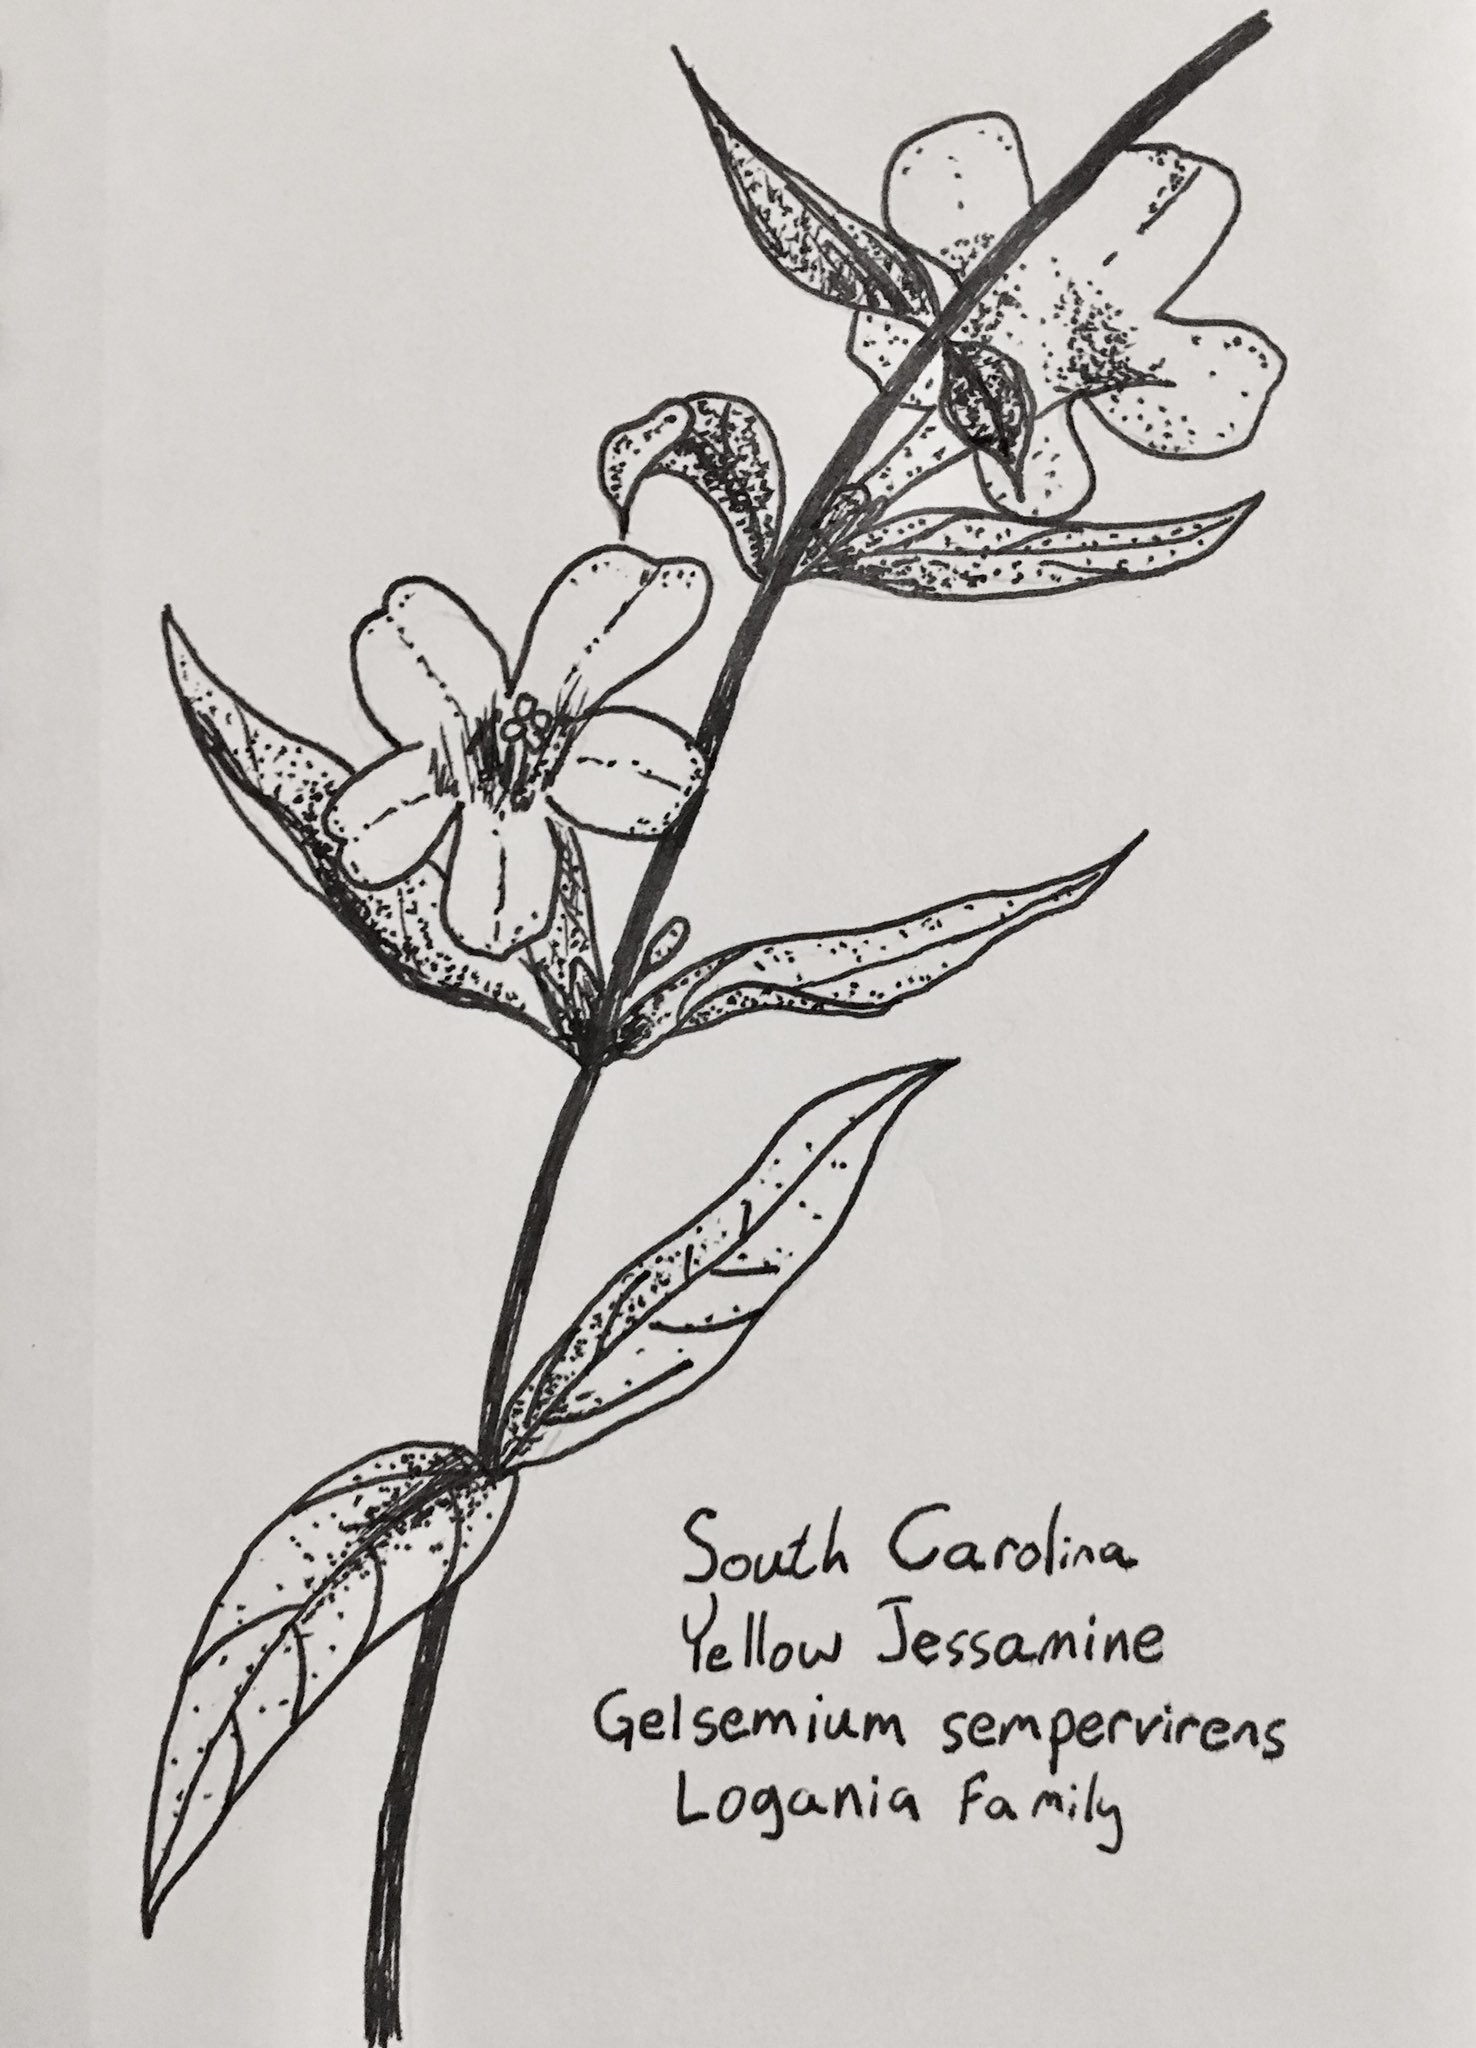 South Carolina
Yellow Jessamine
Gelsemium sempervirens
Logania Family